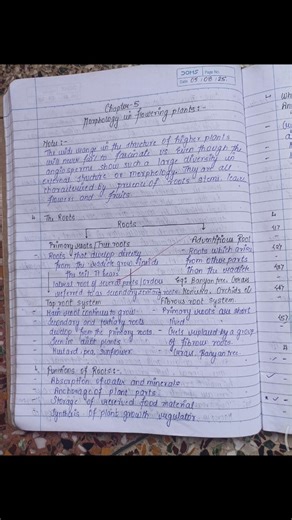 DOMS Page No.
Date 09 08 25
Chapter-5
Morphology in flowering plants:-
Notes:-
The wide range in the structure of higher plants
will never fail to fascinate us. Even though the
angiosperms show such a large diversity in
external structure or morphology. They are all
characterised by presence of roots, stems, leaves
flowers and fruits.
The Roots
Roots
Primary roots / True roots
Adventitious Root
- Roots that develop directly
- Roots which arise
from the
from other parts
the soil. It bears
than the radicle
lateral root of several
Eg: Banyan tree, Grass
referred to as secondary
Top root system
Fibrous root system
- Main root continue to grow
- Primary roots are short
Secondary and tertiary roots
lived
develop from the primary roots
- Gets replaced by a group
- Seen in dicot plants
of fibrous roots.
- Mustard, pea, sunflower
- Grass, Banyan tree
Functions of Roots:-
- Absorption of water and minerals
- Anchorage of plant parts
- Storage of reserved food material
- Synthesis of plant growth regulator.